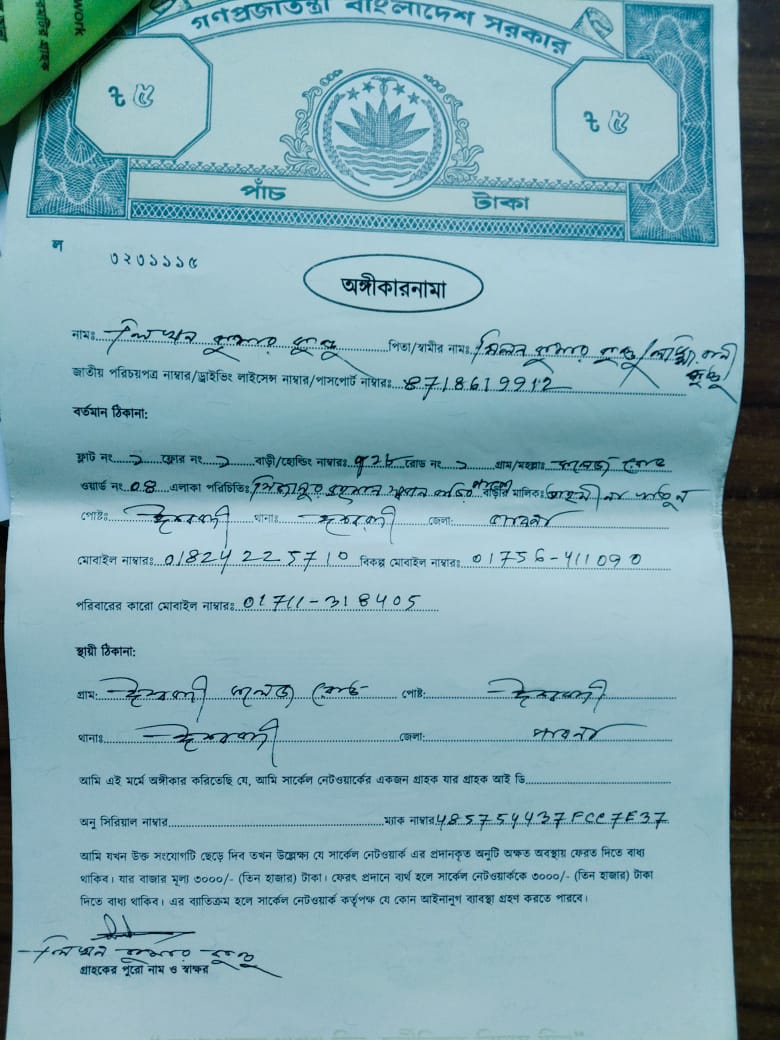 work
গণপ্রজাতন্ত্রী বাংলাদেশ সরকার
৳ ৫ ৳ ৫
পাঁচ টাকা
ল
৩২৩১১১৫
অঙ্গীকারনামা
নামঃ লিখন কুমার কুন্ডু পিতা/স্বামীর নামঃ মিলন কুমার কুন্ডু/ রানী
কুন্ডু
জাতীয় পরিচয়পত্র নাম্বার/ড্রাইভিং লাইসেন্স নাম্বার/পাসপোর্ট নাম্বারঃ 8718619912
বর্তমান ঠিকানা:
ফ্লাট নং ১ ফ্লোর নং ১ বাড়ী/হোল্ডিং নাম্বারঃ রোড নং ১ গ্রাম/মহল্লাঃ কলেজ রোড
ওয়ার্ড নং 04 এলাকা পরিচিতিঃ বাড়ীর মালিকঃ খাতুন
পোষ্টঃ ঈশ্বরদী থানাঃ ঈশ্বরদী জেলা: পাবনা
মোবাইল নাম্বারঃ 01824225710 বিকল্প মোবাইল নাম্বারঃ 01756-411090
পরিবারের কারো মোবাইল নাম্বারঃ 01711-318405
স্থায়ী ঠিকানা:
গ্রাম: ঈশ্বরদী কলেজ রোড পোষ্ট: ঈশ্বরদী
থানাঃ ঈশ্বরদী জেলা: পাবনা
আমি এই মর্মে অঙ্গীকার করিতেছি যে, আমি সার্কেল নেটওয়ার্কের একজন গ্রাহক যার গ্রাহক আই ডি
অনু সিরিয়াল নাম্বার ম্যাক নাম্বার 485754437FCC7E37
আমি যখন উক্ত সংযোগটি ছেড়ে দিব তখন উল্লেক্ষ্য যে সার্কেল নেটওয়ার্ক এর প্রদানকৃত অনুটি অক্ষত অবস্থায় ফেরত দিতে বাধ্য
থাকিব। যার বাজার মূল্য ৩০০০/- (তিন হাজার) টাকা। ফেরৎ প্রদানে ব্যর্থ হলে সার্কেল নেটওয়ার্ককে ৩০০০/- (তিন হাজার) টাকা
দিতে বাধ্য থাকিব। এর ব্যাতিক্রম হলে সার্কেল নেটওয়ার্ক কর্তৃপক্ষ যে কোন আইনানুগ ব্যাবস্থা গ্রহণ করতে পারবে।
লিখন কুমার কুন্ডু
গ্রাহকের পুরো নাম ও স্বাক্ষর